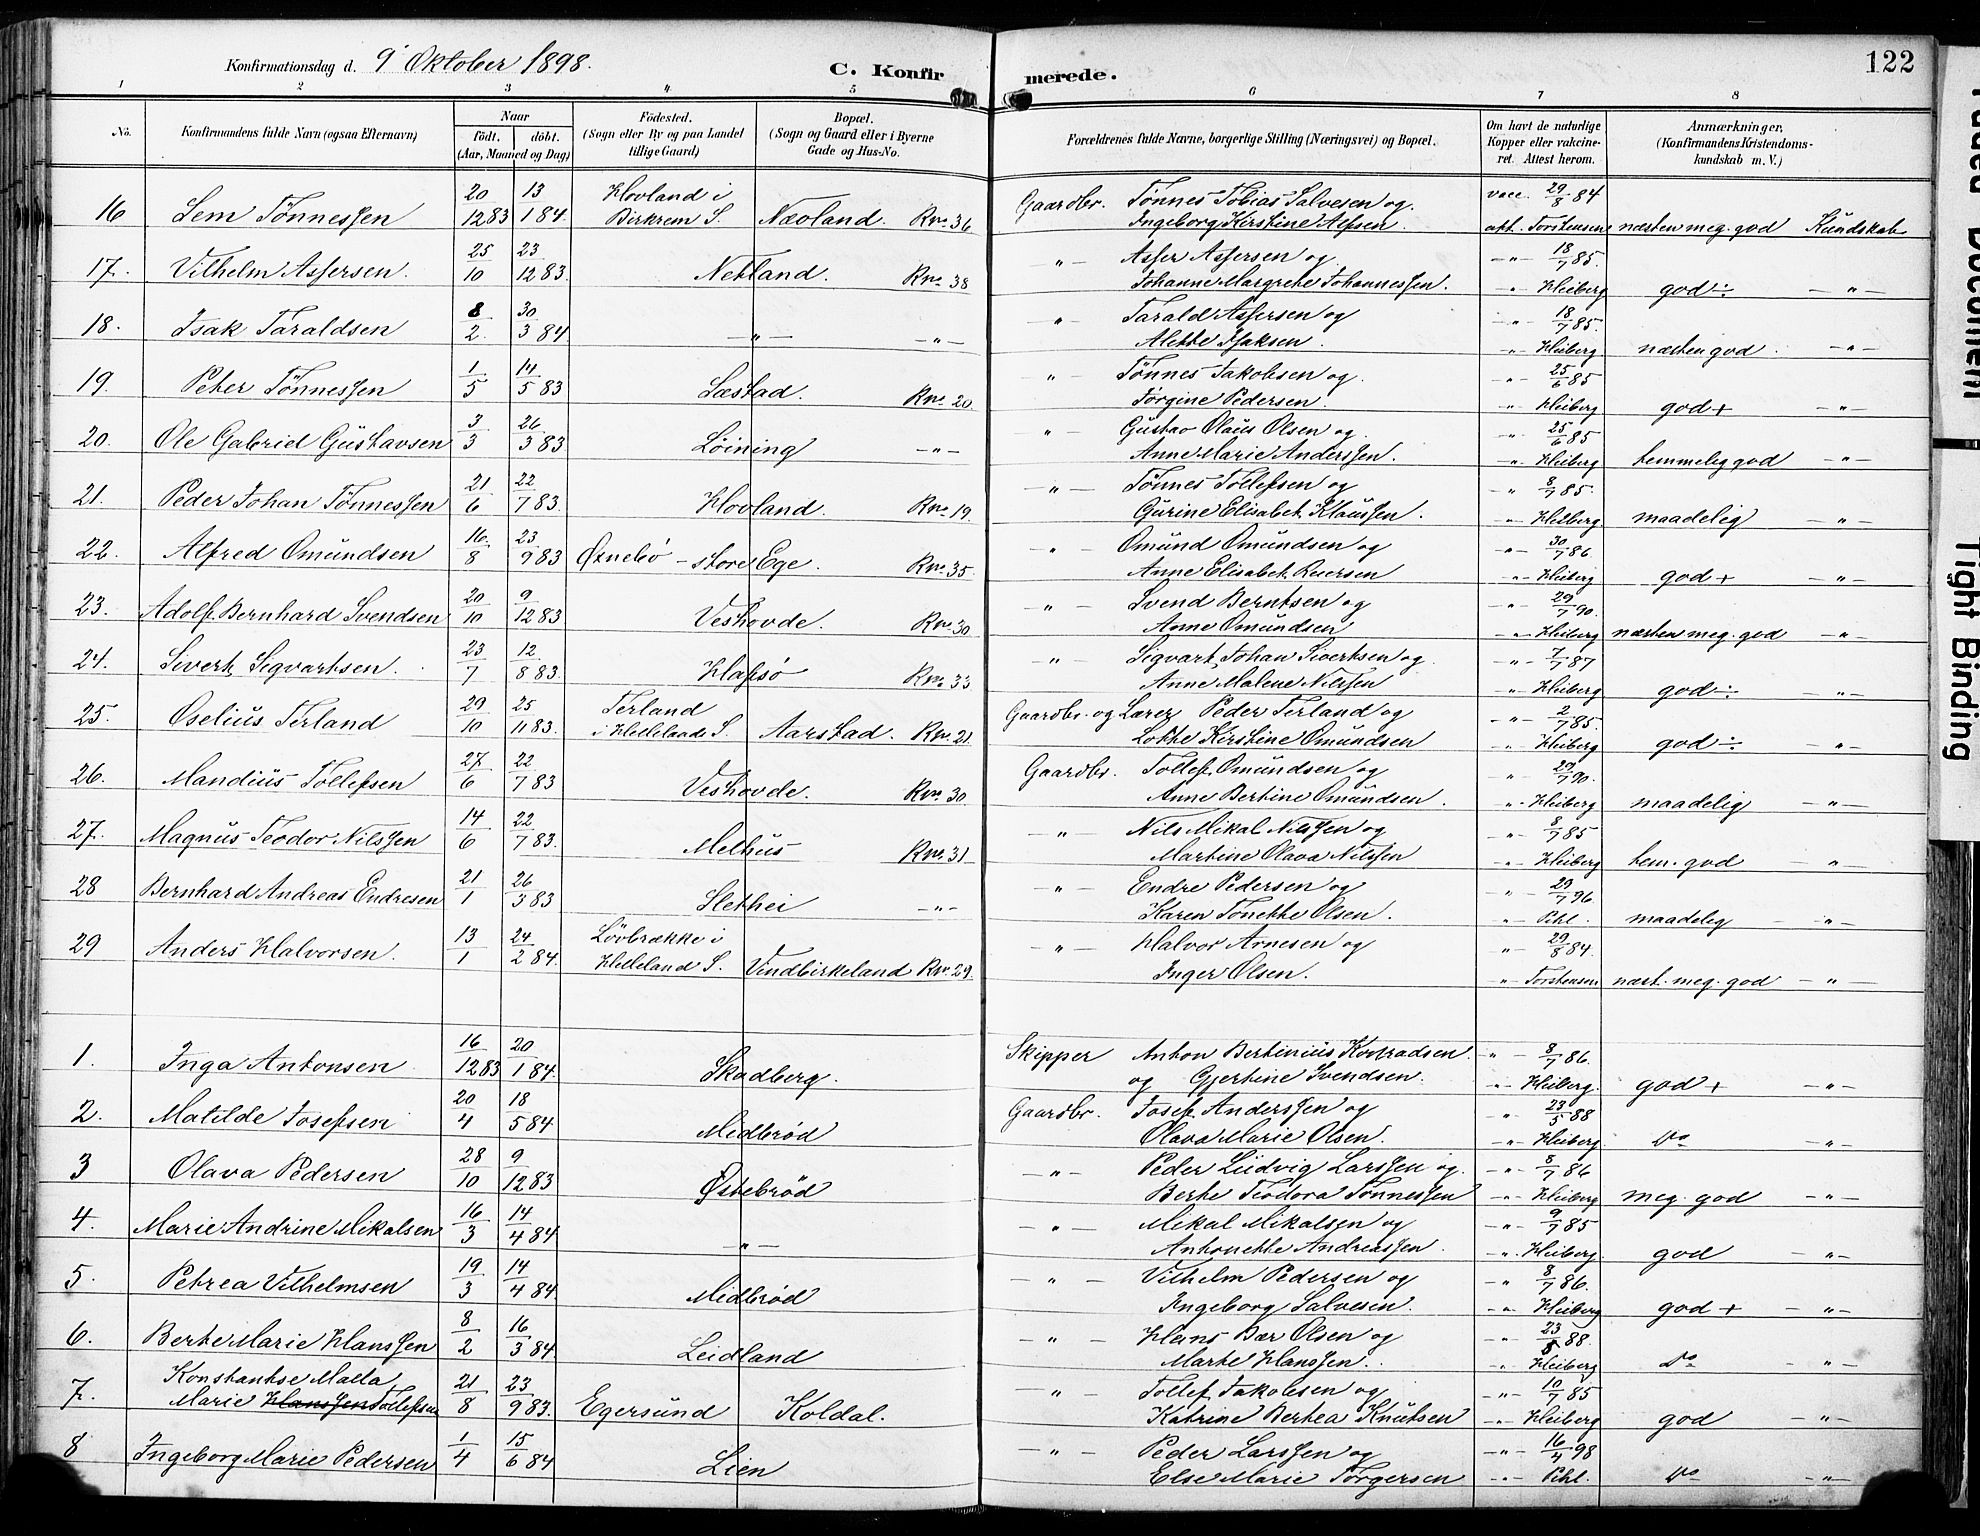 Konfirmationsdag d. 9' Oktober 1898.
C. Konfirmerede.
122
1 2 3 4 5 6 7 8
No. Konfirmandens fulde Navn (ogsaa Efternavn) Naar født. døbt. (Aar, Maaned og Dag) Fødested. (Sogn eller By og paa Landet tillige Gaard) Bopæl. (Sogn og Gaard eller i Byerne Gade og Hus-No. Forældrenes fulde Navne, borgerlige Stilling (Næringsvei) og Bopæl. Om havt de naturlige Kopper eller vakcineret. Attest herom. Anmærkninger, (Konfirmandens Kristendomskundskab m. V.)
20 13 Hovland i Gaardbr. Tönnes Tobias Salvesen og vacc. 29/8 84
16 Sem Tönnessen 12 83 1 84. Birkrem S. Næoland. Rno. 36 Ingeborg Kirstine Alfsen. att. Torstensen næsten meg. god Kundskab
17. Vilhelm Assersen. 25/10 23/12 83. Netland. Rno. 38 -"- Asser Assersen og -"- 18/7 85.
Johanne Margrete Johannessen. -"- Heiberg god ÷ -"-
18. Isak Taraldsen 8/2. 30/3 84 -"- -"- " Tarald Assersen og -"- 18/7 85.
Alette Isaksen. -"- Heiberg næsten god. -"-
19. Peter Tönnessen 1/5 14/5 83 Sæstad. Rno. 20. " Tönnes Jakobsen og -"- 25/6 85
Törgine Pedersen. -"- Heiberg god + -"-
20. Ole Gabriel Gustavsen 3/3 26/3 83 Löining -"- "- Gustav Olaus Olsen og -"- 25/6 85
Anne Marie Anderssen. -"- Heiberg temmelig god -"-
21. Peder Johan Tönnessen 21/6 22/7 83. Hovland. Rno. 19. -"- Tönnes Tollefsen og -" 8/7 85.
Gurine Elisabet Klaussen. -"- Heiberg maadelig -"-
22. Alfred Omundsen 16./8 23/9 83 Øznebö - store Ege. Rno. 35. " Omund Omundsen og -"- 30/7 86
Anne Elisabet Reiersen -"- Heiberg god + -"-
23. Adolf Bernhard Svendsen 20/10 9/12 83 Veshovde. Rno. 30 " Svend Berntsen og -"- 29/7 90.
Anne Omundsen -"- Heiberg næsten meg. god -"-
24. Sivert Sigvartsen. 23/7 12/8 83. Hafsö Rno. 33 "- Sigvart Johan Sivertsen og -"- 7/7 87
Anne Malene Nilssen -"- Heiberg god ÷ -"-
25. Oselius Terland 29/10 25/11 83. Terland Gaardbr. og Lærer Peder Terland og -"- 2/7 85.
i Hellelands S. Aarstad. Rno. 21. Lotte Kirstine Omundsen -"- Heiberg god ÷ -"-
26. Mandius Tollefsen 27/6 22/7 83 Veshovde. Rno. 30 Gaardbr. Tollef Omundsen og " 29/7 90.
Anne Bertine Omundsen. -"- Heiberg maadelig -"-
27. Magnus Teodor Nilssen 14/6 22/7 83. Melhus Rno. 31 " Nils Mikal Nilssen og -"- 8/7 85
Martine Olava Nilssen -"- Heiberg tem. god -"-
28 Bernhard Andreas Endresen 21/1 26/3 83 Slethei -"- -"- Endre Pedersen og -"- 29/7 96
Karen Tonette Olsen. " Pihl. maadelig -"-
29 Anders Halvorsen. 13/1 24/2 84. Lövbrække i " Halvor Arnesen og " 29/8 84.
Helleland S. Vindbirkeland Rno. 29. Inger Olsen. -"- Torstensen næst. meg. god -"-
1. Inga Antonsen 16/12 83 20/1 84. Skadberg. Skipper Anton Bertinius Konradsen " - 8/7 86.
og Gjertine Svendsen. -"- Heiberg. god + -"-
2. Matilde Josefsen 20/4 18/5 84 Midbröd Gaardbr. Josef Anderssen og " 23/5 88
Olava Marie Olsen. -"- Heiberg. Do -"-
3 Olava Pedersen 28/10 9/12 83 Østebröd " Peder Ludvig Larssen og -"- 8/7 86
Berte Teodora Tönnessen -"- Heiberg meg. god -"-
4. Marie Andrine Mikalsen 16/3 14/4 84 -"- " Mikal Mikalsen og -"- 9/7 85
Antonette Andreassen. -"- Heiberg. god -"-
5. Petrea Vilhelmsen 19/3 14/4 84 Midbröd -"- Vilhelm Pedersen og -" 8/7 86.
Ingeborg Salvesen. -"- Heiberg god + -"-
6. Berte Marie Hanssen 8/2 16/3 84. Leidland -"- Hans Bær Olsen og -" 23 88.
Marte Hanssen. -"- Heiberg Do -"-
7. Konstantse Malla 21/8 23/9 83. Egersund Koldal. -"- Tollef Jakobsen og -"- 10/7 85
Marie Hanssen Tollefsen Katrine Bertea Knutsen -"- Heiberg god -"-
8 Ingeborg Marie Pedersen 1/4 15/6 84 Lien -"- Peder Larssen og -"- 16/4 98
Else Marie Törgersen -"- Pihl. Do -"-
Faded Document
Tight Binding